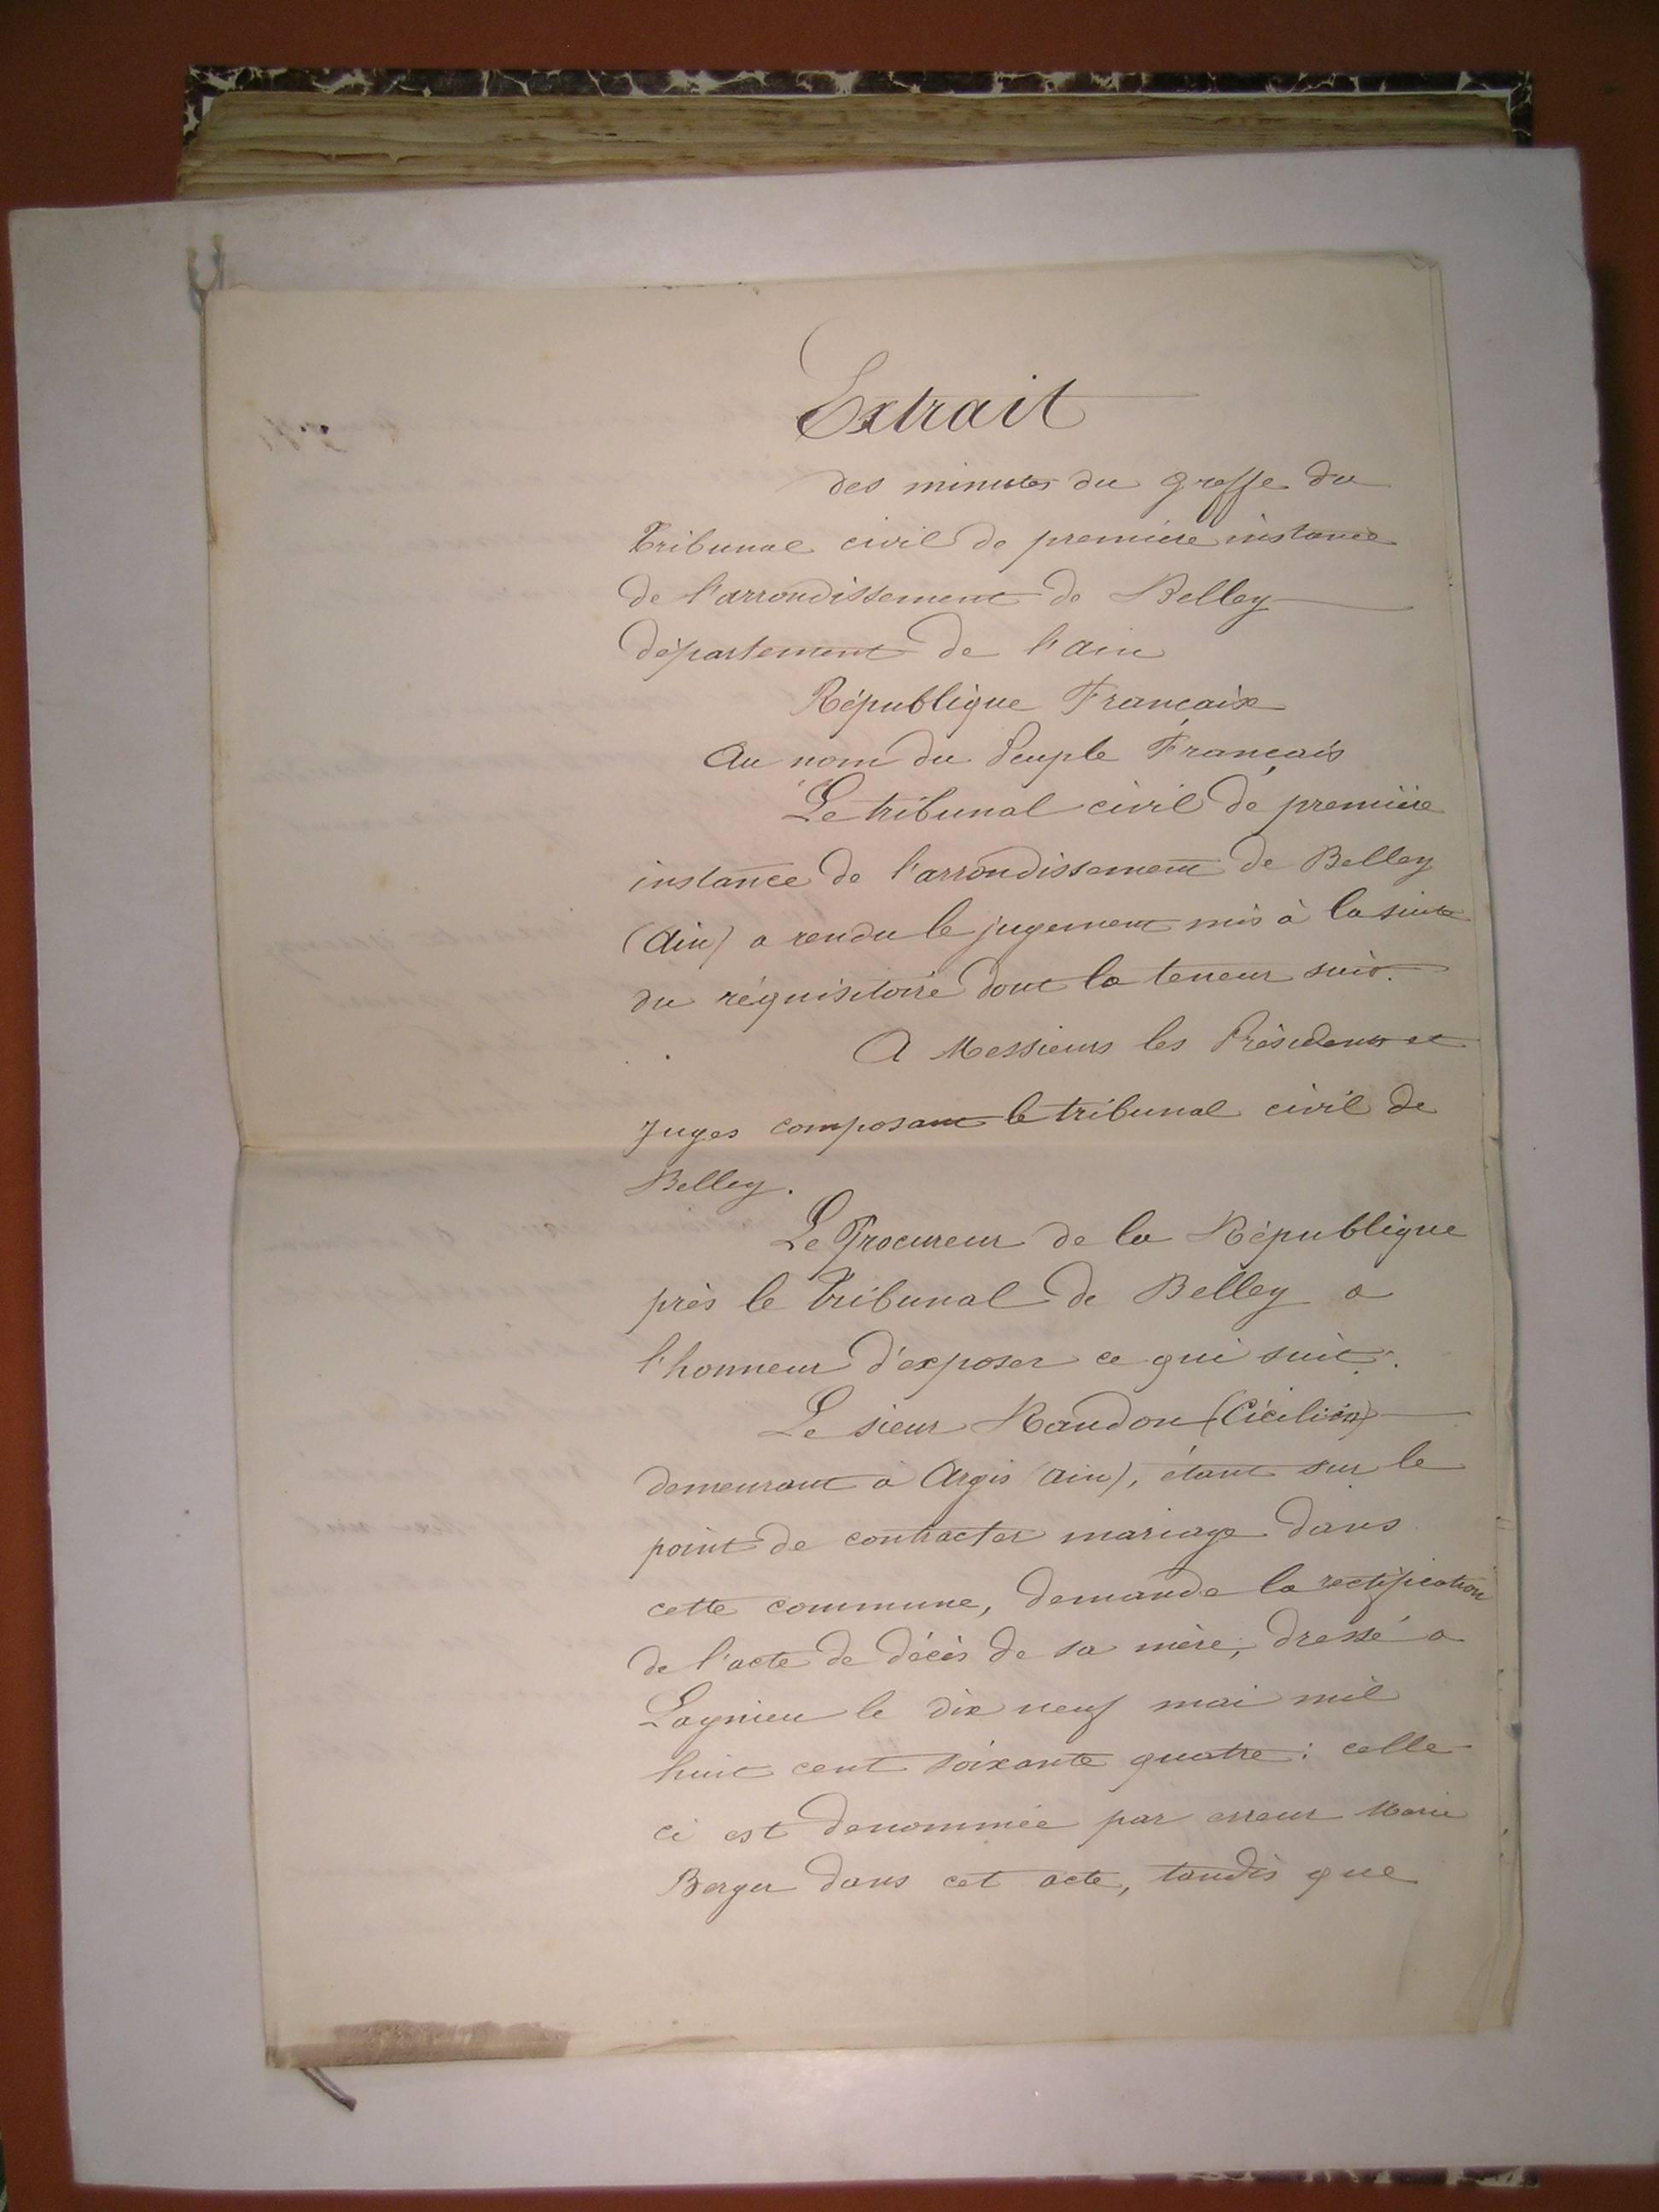 Extrait
des minutes du greffe du
Tribunal civil de première instance
de l'arrondissement de Belley
département de l'ain
République Française
Au nom du Peuple Français
Le tribunal civil de première
instance de l'arrondissement de Belley
(Ain) a rendu le jugement mis à la suite
du réquisitoire dont la teneur suit.
A Messieurs les Présidents et
Juges composant le tribunal civil de
Belley.
Le Procureur de la République
près le Tribunal de Belley a
l'honneur d'exposer ce qui suit.
Le sieur Randon (Cécilien)
demeurant à Argis (ain), étant sur le
point de contracter mariage dans
cette commune, demande la rectification
de l'acte de décès de sa mère, dressé a
Lagnieu le dix neuf mai mil
huit cent soixante quatre : celle
ci est denommée par erreur Marie
Berger dans cet acte, tandis que